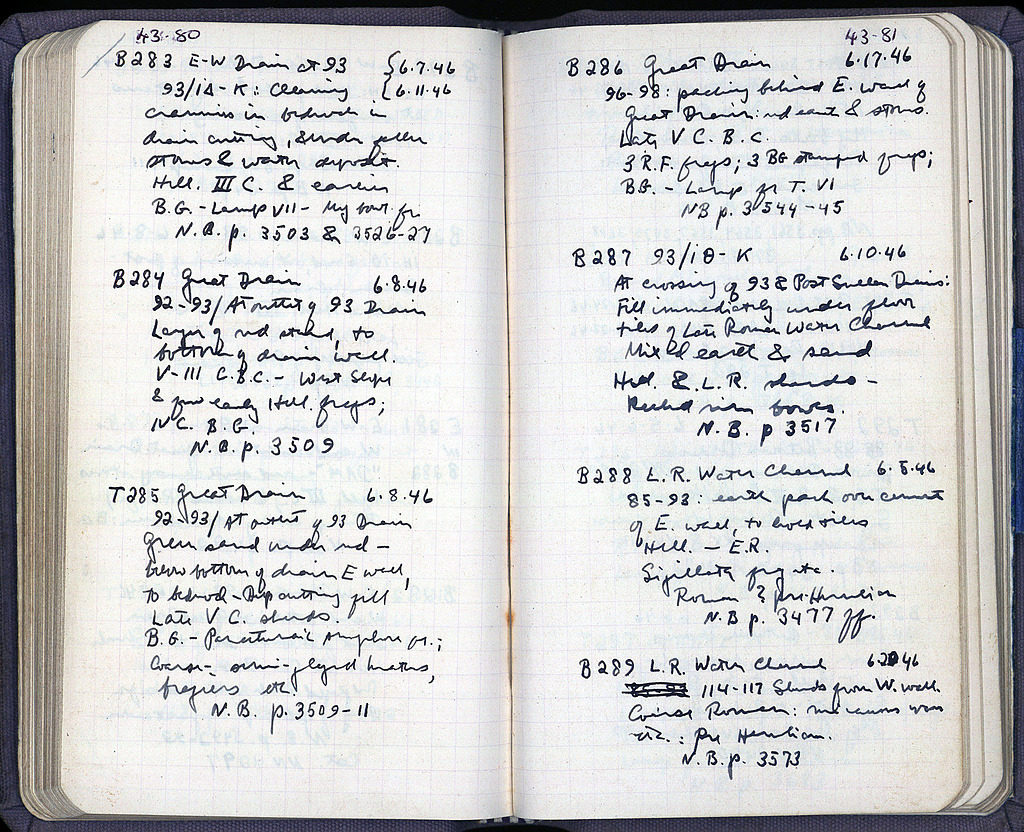 43-80
B283 E-W Drain at 93 {6.7.46
93/ΙΔ - Κ: Cleaning {6.11.46
crannies in bedrock in
drain cutting, & under
stones & water deposit.
Hell. III C. & earlier
B.G. - Lamp VII -
N.B. p. 3503 & 3526-27
B284 Great Drain 6.8.46
92-93/ At outlet of 93 Drain
Layer of red sand, to
bottom of drain wall.
V-III C.B.C. - West Slope
& few early Hell. frags;
IV C. B.G.
N.B. p. 3509
T285 Great Drain 6.8.46
92-93/ At outlet of 93 Drain
Green sand under red -
below bottom of drain E wall,
to bedrock - Dep. cutting fill
Late V C. sherds.
B.G. - Panathenaic Amphora fr.;
Coarse - semi-glazed kraters,
braziers etc.
N.B. p. 3509-11
43-81
B286 Great Drain 6.17.46
96-98: packing behind E. wall of
Great Drain: red earth & stones.
Late V C. B.C.
3 R.F. frags; 3 BG stamped frags;
BG. - Lamp fr T. VI
NB p. 3544-45
B287 93/ΙΘ - Κ 6.10.46
At crossing of 93 & Post Sullan Drains:
Fill immediately under floor
tiles of Late Roman Water Channel
Mixed earth & sand
Hell. & L.R. sherds -
rim bowls.
N.B. p 3517
B288 L.R. Water Channel 6.5.46
85-93: earth pack over cement
of E. wall, to cover tiles
Hell. - E.R.
Sigillata frg etc.
Roman & pre-Herulian
N.B p. 3477 ff.
B289 L.R. Water Channel 6.20.46
114-117 Sherds from W. wall.
Coarse Roman:
etc.: Pre Herulian.
N.B. p. 3573